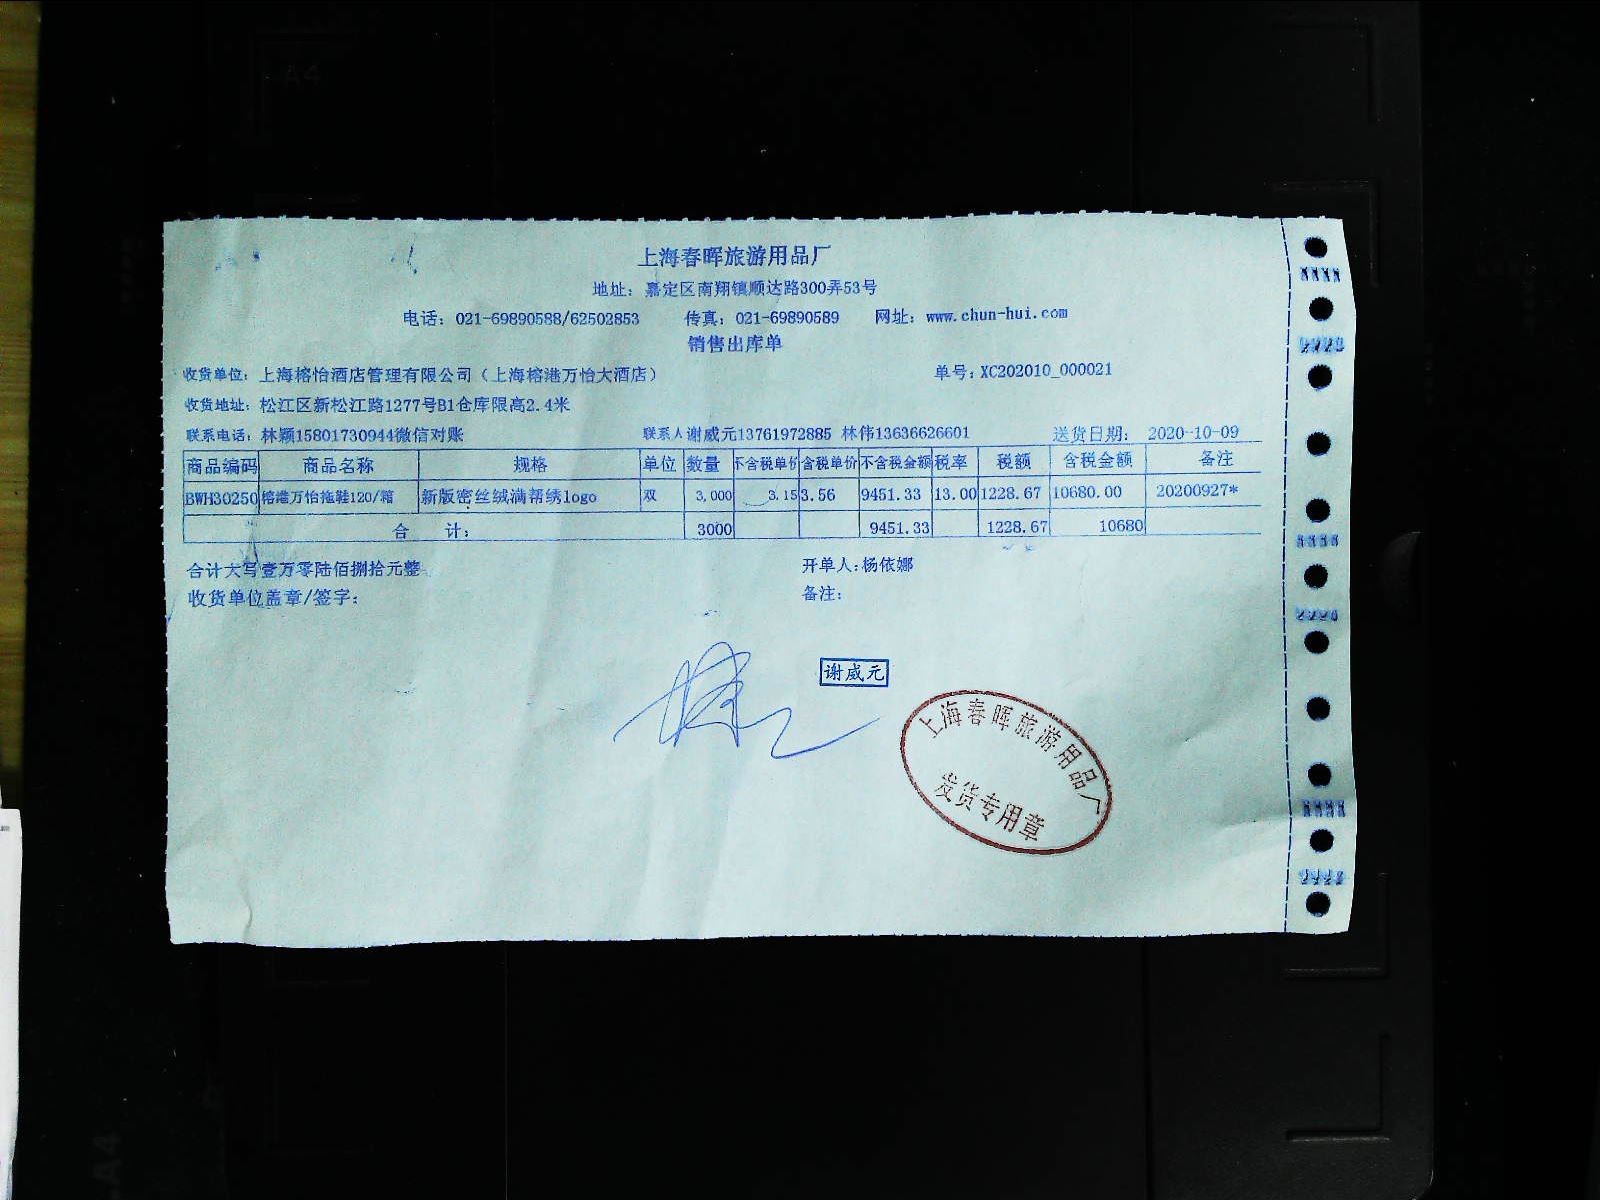 上海春晖旅游用品厂
地址：嘉定区南翔镇顺达路300弄53号
电话：021-69890588/62502853 传真：021-69890589 网址：www.chun-hui.com
销售出库单
收货单位：上海榕怡酒店管理有限公司（上海榕港万怡大酒店） 单号：XC202010_000021
收货地址：松江区新松江路1277号B1仓库限高2.4米
联系电话：林颖15801730944微信对账 联系人谢威元13761972885 林伟13636626601 送货日期： 2020-10-09
商品编码 商品名称 规格 单位 数量 不含税单价 含税单价 不含税金额 税率 税额 含税金额 备注
BWH30250 榕港万怡拖鞋120/箱 新版密丝绒满帮绣logo 双 3,000 3.15 3.56 9451.33 13.00 1228.67 10680.00 20200927*
合 计： 3000 9451.33 1228.67 10680
合计大写壹万零陆佰捌拾元整 开单人：杨依娜
收货单位盖章/签字： 备注：
谢威元
上海春晖旅游用品厂
发货专用章
A4
A4